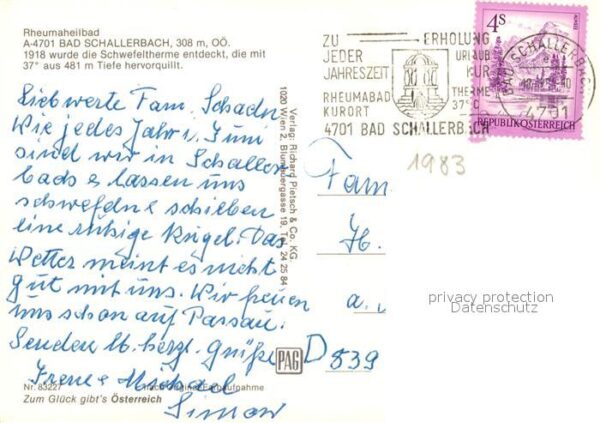 Rheumaheilbad
A-4701 BAD SCHALLERBACH, 308 m, OÖ.
1918 wurde die Schwefeltherme entdeckt, die mit
37° aus 481 m Tiefe hervorquillt.
Liebwerte Fam. Schadn
Wie jedes Jahr i. Juni
sind wir in Schaller
bach & lassen uns
schwefeln & schieben
eine ruhige Kugel. Das
Wetter meint es nicht
gut mit uns. Wir freuen
uns schon auf Passau.
Senden lb. herzl. Grüße
Irene & Michael
Simon
Nr. 83227
Zum Glück gibt's Österreich
Verlag: Richard Pietsch & Co. KG
1020 Wien 2, Blumauergasse 19, Tel. 24 25 84
PAG
ZU ERHOLUNG
JEDER URLAUB
JAHRESZEIT KUR
RHEUMABAD THERME
KURORT 37° C
4701 BAD SCHALLERBACH
4S
BAD SCHALLERBACH
4701
REPUBLIK ÖSTERREICH
1983
Fam.
H.
a.
D 839
privacy protection
Datenschutz